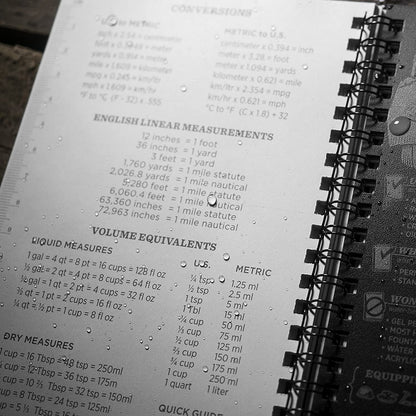 CONVERSIONS
U.S. to METRIC
inch x 2.54 = centimeter
foot x 0.3048 = meter
yards x 0.914 = meter
mile x 1.609 = kilometer
mpg x 0.245 = km/ltr
mph x 1.609 = km/hr
°F to °C (F - 32) x .555
METRIC to U.S.
centimeter x 0.394 = inch
meter x 3.28 = foot
meter x 1.094 = yards
kilometer x 0.621 = mile
km/ltr x 2.354 = mpg
km/hr x 0.621 = mph
°C to °F (C x 1.8) + 32
ENGLISH LINEAR MEASUREMENTS
12 inches = 1 foot
36 inches = 1 yard
3 feet = 1 yard
1,760 yards = 1 mile statute
2,026.8 yards = 1 mile nautical
5,280 feet = 1 mile statute
6,060.4 feet = 1 mile nautical
63,360 inches = 1 mile statute
72,963 inches = 1 mile nautical
VOLUME EQUIVALENTS
LIQUID MEASURES
1 gal = 4 qt = 8 pt = 16 cups = 128 fl oz
½ gal = 2 qt = 4 pt = 8 cups = 64 fl oz
¼ gal = 1 qt = 2 pt = 4 cups = 32 fl oz
½ qt = 1 pt = 2 cups = 16 fl oz
¼ qt = ½ pt = 1 cup = 8 fl oz
U.S. METRIC
¼ tsp 1.25 ml
½ tsp 2.5 ml
1 tsp 5 ml
1 Tbl 15 ml
¼ cup 50 ml
⅓ cup 75 ml
½ cup 125 ml
⅔ cup 150 ml
¾ cup 175 ml
1 cup 250 ml
1 quart 1 liter
DRY MEASURES
1 cup = 16 Tbsp = 48 tsp = 250ml
¾ cup = 12 Tbsp = 36 tsp = 175m
⅔ cup = 10 ⅔ Tbsp = 32 tsp = 150ml
½ cup = 8 Tbsp = 24 tsp = 125ml
= 5 ⅓ Tbsp = 16 tsp
QUICK GUIDE